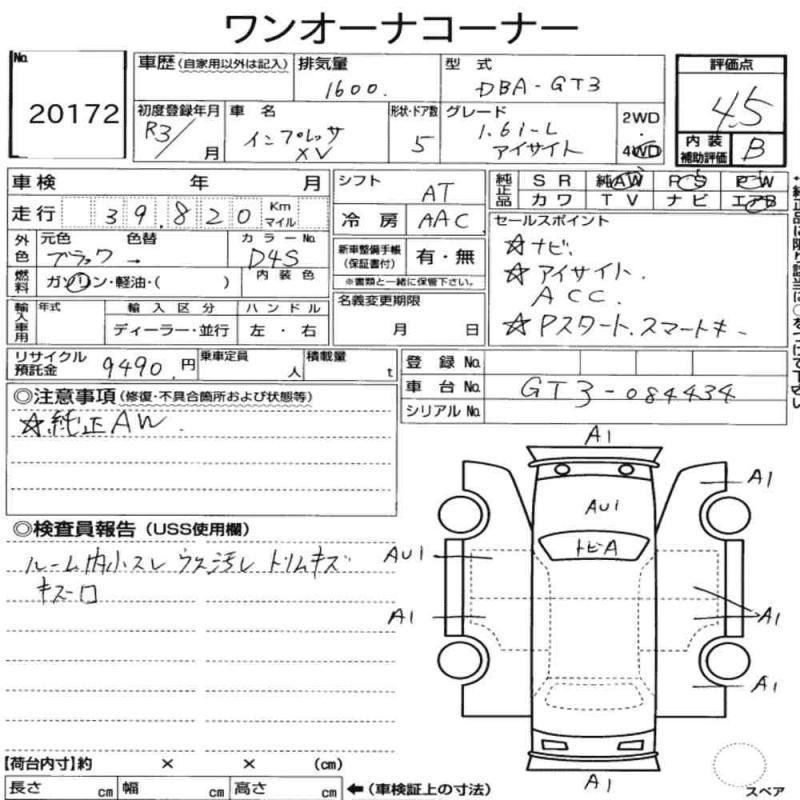 ワンオーナコーナー
No.
20172
車歴 (自家用以外は記入)
排気量
1600.
型式
DBA-GT3
評価点
4.5
内装補助評価
B
初度登録年月
R3/ 月
車名
インプレッサ
XV
形状・ドア数
5
グレード
1.6i-L
アイサイト
2WD
・
4WD
車検 年 月
走行 39.820 Km マイル
シフト
AT
冷房
AAC
純正品
SR 純AW PS PW
カワ TV ナビ エアB
外色
元色 色替
ブラック →
カラーNo.
D4S
内装色
燃料
ガソリン・軽油・( )
新車整備手帳
(保証書付)
有・無
※書類と一緒に保管下さい。
セールスポイント
☆ナビ.
☆アイサイト.
ACC.
☆Pスタート.スマートキー
輸入車用
年式
輸入区分
ディーラー・並行
ハンドル
左・右
名義変更期限
月 日
リサイクル預託金
9490. 円
乗車定員
人
積載量
t
登録No.
車台No.
GT3-084434
シリアルNo.
◎注意事項 (修復・不具合箇所および状態等)
☆純正AW.
◎検査員報告 (USS使用欄)
ルーム内小スレ ウス汚レ トリムキズ
A1
A1
AU1
トビA
AU1
A1
A1
A1
A1
スペア
【荷台内寸】約 × × (cm)
長さ cm 幅 cm 高さ cm ←(車検証上の寸法)